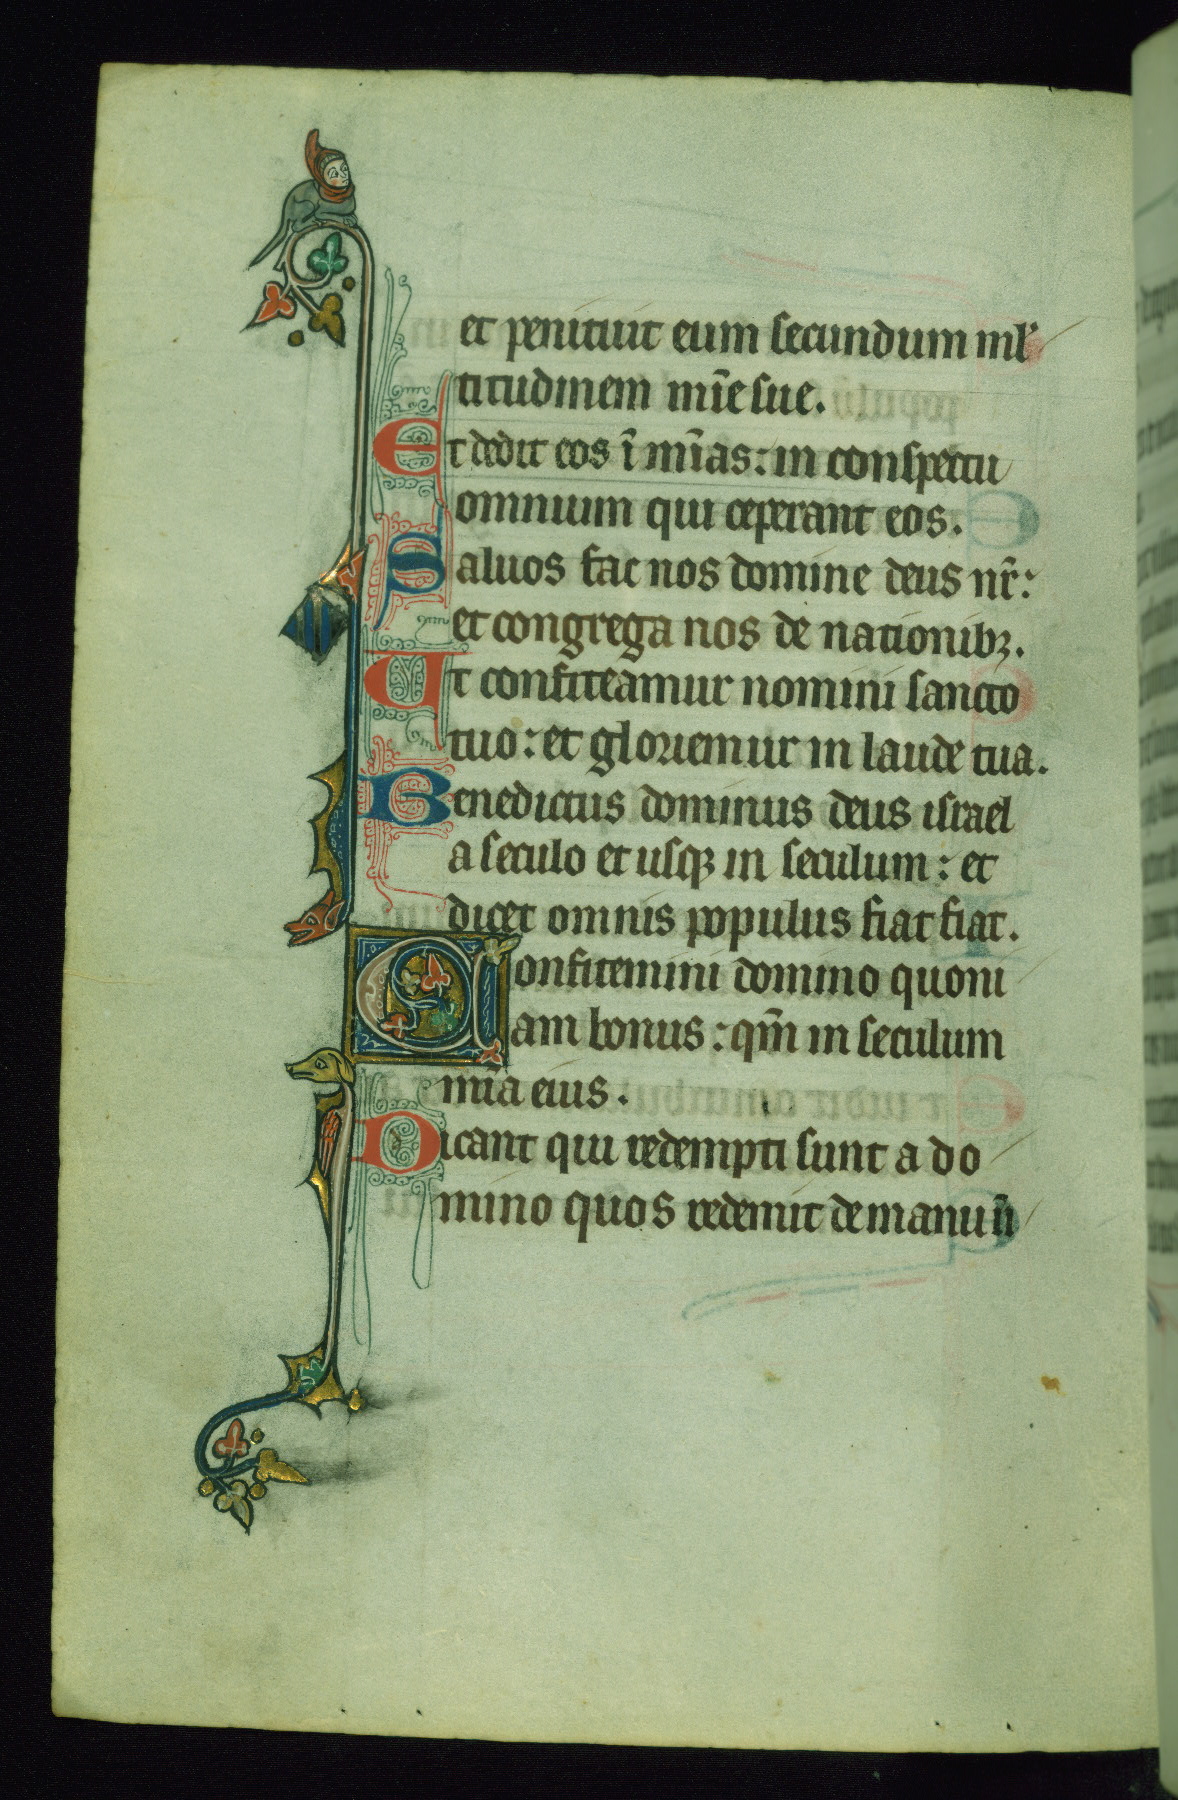 et penituit eum secundum ml̉
titudinem mīe sue.
Et dedit eos ī mīas: in conspectu
omnium qui ceperant eos.
Saluos fac nos domine deus nr̄:
et congrega nos de nationibꝫ.
Ut confiteamur nomini sancto
tuo: et gloriemur in laude tua.
Benedictus dominus deus israel
a seculo et usqꝫ in seculum: et
dicet omnis populus fiat fiat.
Confitemini domino quoni
am bonus: qm̄ in seculum
mīa eius.
Dicant qui redempti sunt a do
mino quos redemit de manu in̄